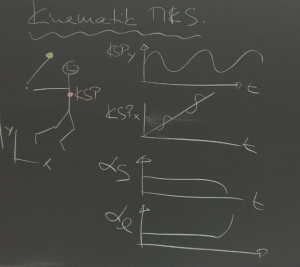 Kinematik MKS.
KSPy
t
KSP
KSPx
t
y
x
αs
t
αe